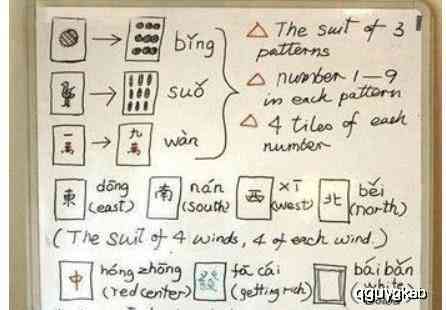 bǐng
suǒ
一萬 九萬 wàn
△ The suit of 3 patterns
△ number 1–9 in each pattern
△ 4 tiles of each number
東 dōng (east) 南 nán (south) 西 xī (west) 北 běi (north)
(The suit of 4 winds, 4 of each wind.)
中 hóng zhōng (red center) fā cái (getting rich) bái bǎn white
qguygkab